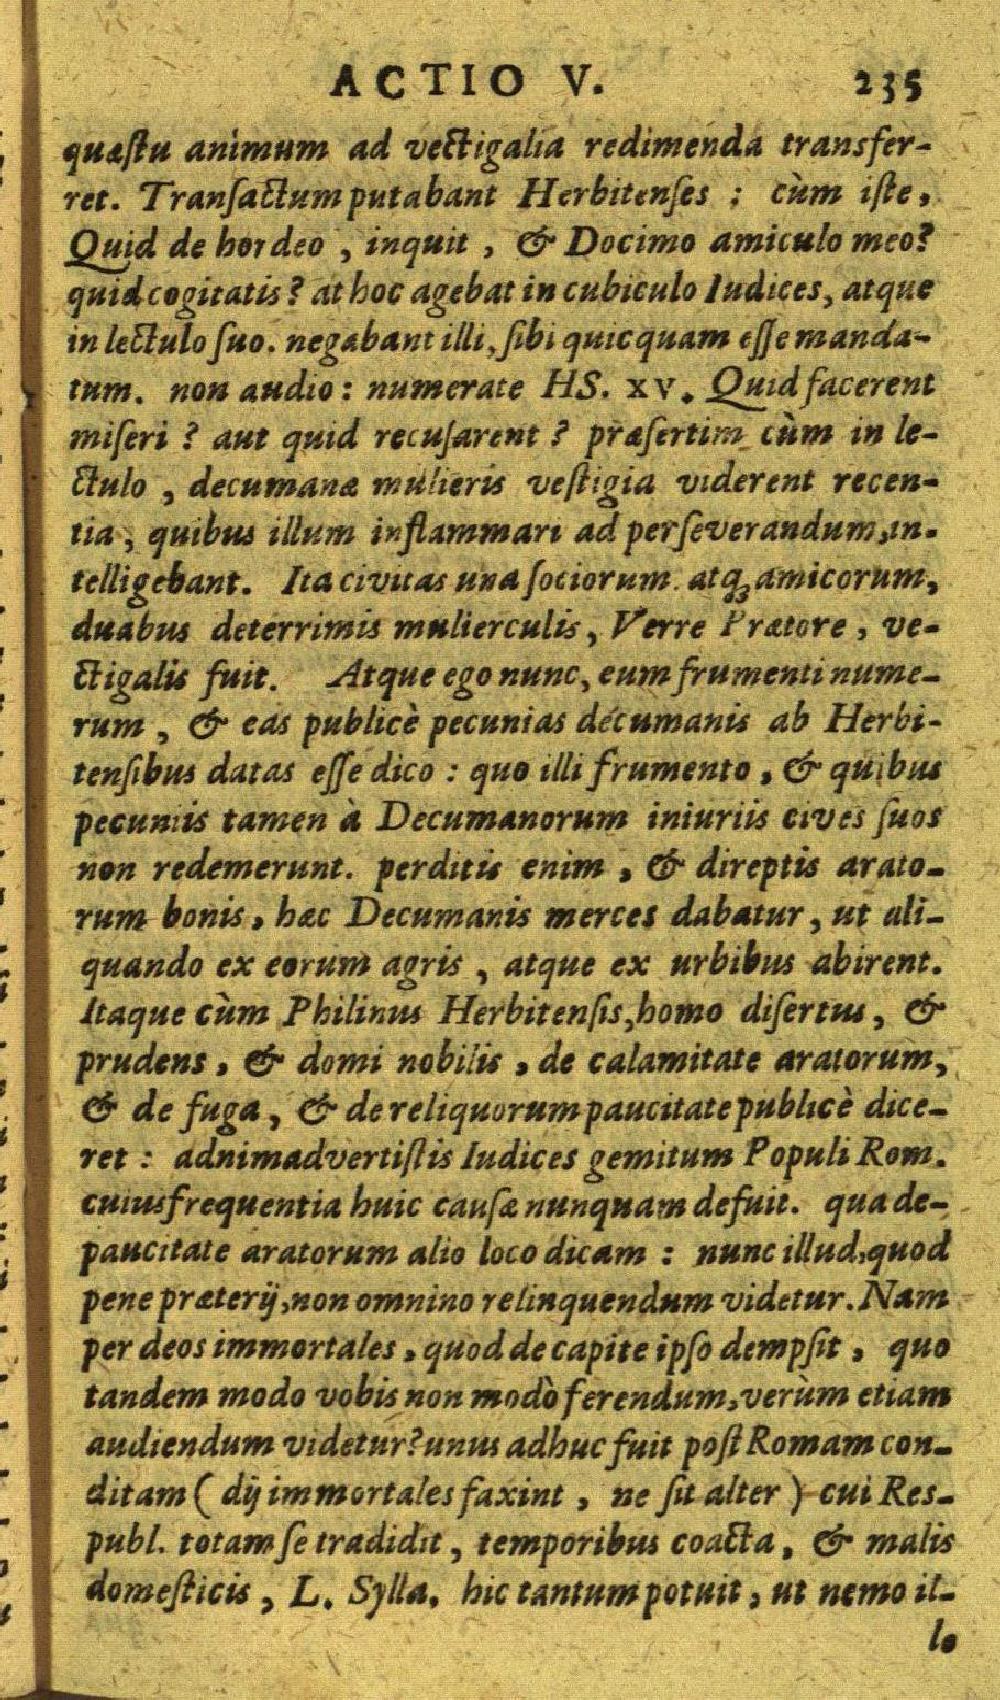 ACTIO V. 235
quæſtu animum ad vectigalia redimenda transfer-
ret. Tranſactum putabant Herbitenſes : cùm iſte,
Quid de hordeo , inquit , & Docimo amiculo meo?
quid cogitatis? at hoc agebat in cubiculo Iudices, atque
in lectulo ſuo. negabant illi, ſibi quicquam eſſe manda-
tum. non audio: numerate HS. xv. Quid facerent
miſeri ? aut quid recuſarent ? præſertim cùm in le-
ctulo , decumanæ mulieris veſtigia viderent recen-
tia, quibus illum inflammari ad perſeverandum, in-
telligebant. Ita civitas una ſociorum atq; amicorum,
duabus deterrimis mulierculis, Verre Prætore, ve-
ctigalis fuit. Atque ego nunc, eum frumenti nume-
rum , & eas publicè pecunias decumanis ab Herbi-
tenſibus datas eſſe dico : quo illi frumento, & quibus
pecuniis tamen à Decumanorum iniuriis cives ſuos
non redemerunt. perditis enim , & direptis arato-
rum bonis, hæc Decumanis merces dabatur, ut ali-
quando ex eorum agris , atque ex urbibus abirent.
Itaque cùm Philinus Herbitenſis, homo diſertus, &
prudens, & domi nobilis , de calamitate aratorum,
& de fuga, & de reliquorum paucitate publicè dice-
ret : adnimadvertiſtis Iudices gemitum Populi Rom.
cuius frequentia huic cauſæ nunquam defuit. qua de-
paucitate aratorum alio loco dicam : nunc illud, quod
pene præterij, non omnino relinquendum videtur. Nam
per deos immortales, quod de capite ipſo dempſit , quo
tandem modo vobis non modò ferendum, verùm etiam
audiendum videtur? unus adhuc fuit poſt Romam con-
ditam ( dij immortales faxint , ne ſit alter ) cui Res-
publ. totam ſe tradidit, temporibus coacta, & malis
domeſticis , L. Sylla. hic tantum potuit, ut nemo il-
lo